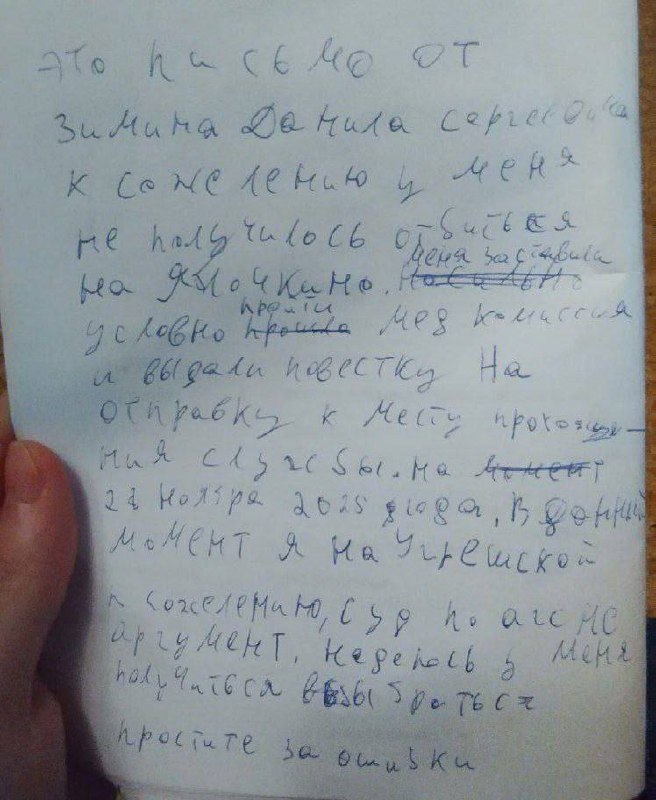 это письмо от
Зимина Данила сергеевича
к сожелению у меня
не получилось отбиться
на Яблочкино. меня заставили насильно
условно пройти прошла мед комиссия
и выдали повестку На
отправку к месту прохожде-
ния службы. на момент
ноября 2025 года. В данный
момент я на Угрешской
к сожелению, суд по агс не
аргумент. надеюсь у меня
получиться выбраться
простите за ошибки